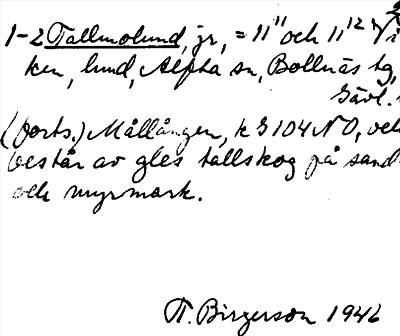 1-2 Tallmolund, jr, = 11¹¹ och 11¹² Vi
ken, lund, Alfta sn, Bollnäs tg,
Gävl.
(forts.) Mållången, k G 104 NO, och
består av gles tallskog på sand
och myrmark.
T. Birgerson 1946